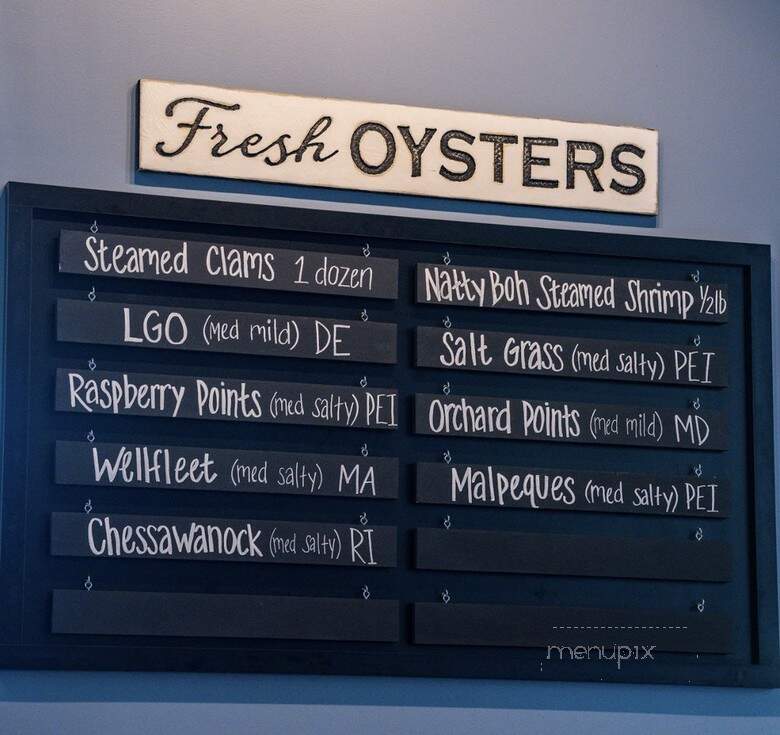 Fresh OYSTERS
Steamed Clams 1 dozen
LGO (med mild) DE
Raspberry Points (med salty) PEI
Wellfleet (med salty) MA
Chessawanock (med salty) RI
Natty Boh Steamed Shrimp 1/2lb
Salt Grass (med salty) PEI
Orchard Points (med mild) MD
Malpeques (med salty) PEI
menupix